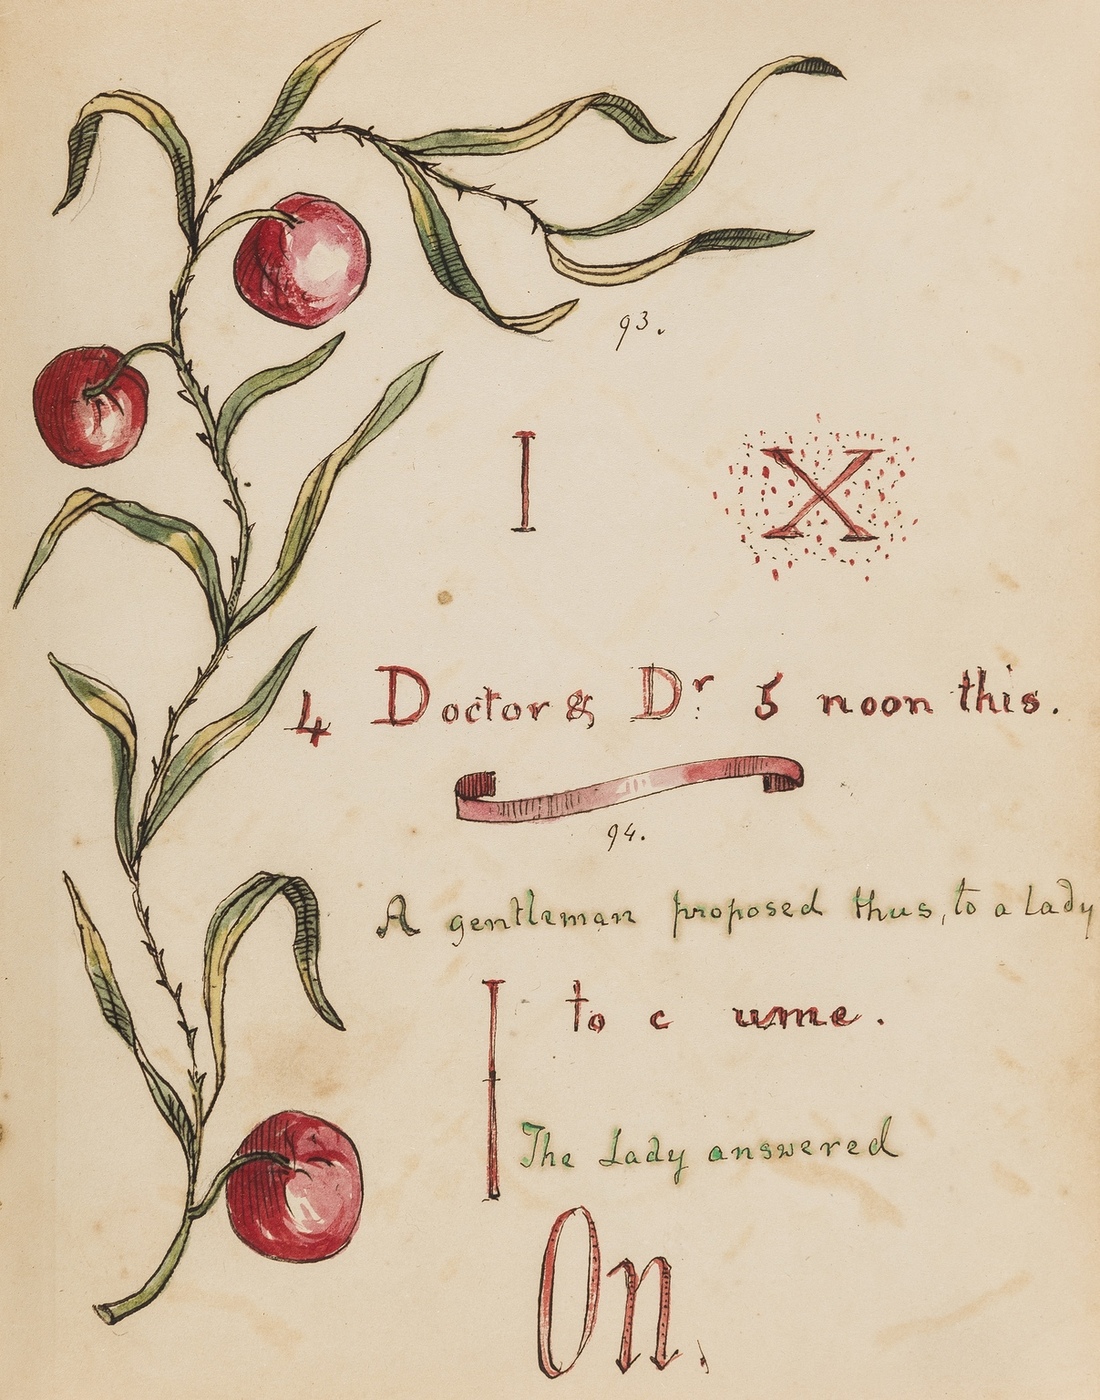 93.
I X
4 Doctor & Dr 5 noon this.
94.
A gentleman proposed thus, to a lady
I to c ume.
The Lady answered
On.